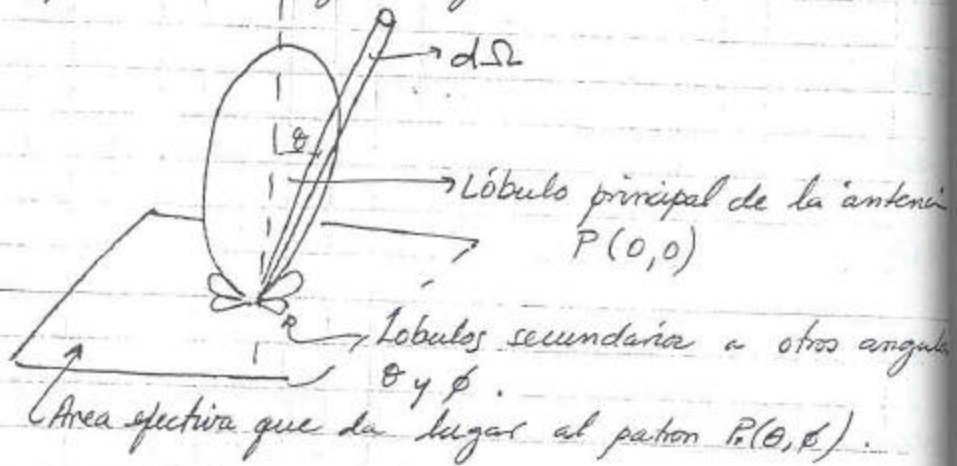 dΩ
θ
Lóbulo principal de la antena
P(0,0)
Lóbulos secundarios a otros angulo
θ y φ.
Area efectiva que da lugar al patron Pn(θ,φ).